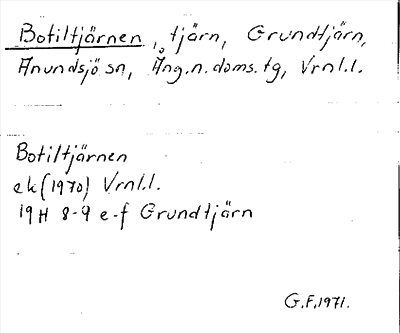 Botiltjärnen, tjärn, Grundtjärn,
Anundsjö sn, Ång.n.doms.tg, Vrnl.l.
Botiltjärnen
ek (1970) Vrnl.l.
19H 8-9 e-f Grundtjärn
G.F. 1971.